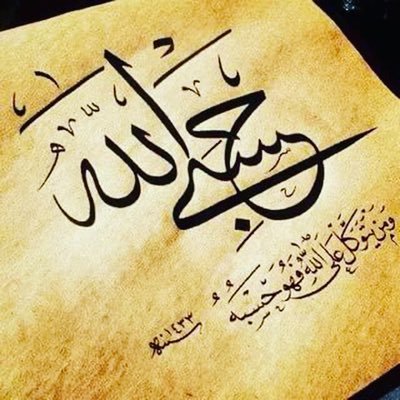 حسبي الله
وَمَن يَتَوَكَّلْ عَلَى اللَّهِ فَهُوَ حَسْبُهُ
سنة ١٤٣٣ هـ